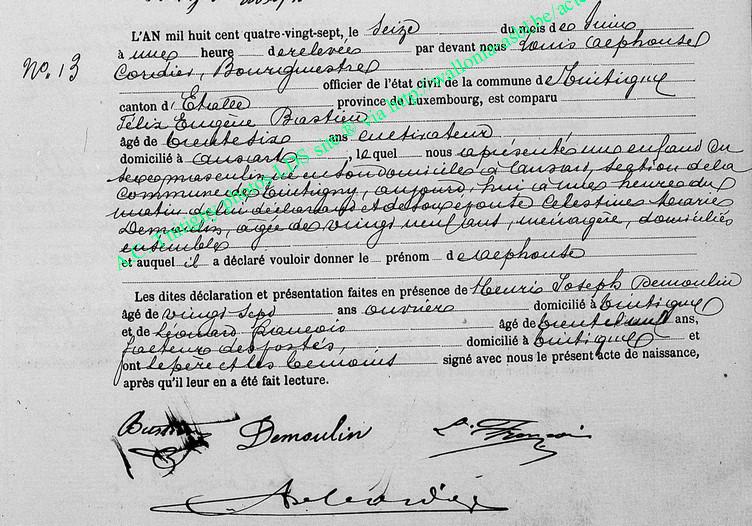 No. 13
L'AN mil huit cent quatre-vingt-sept, le seize du mois de Juin
à une heure de relevée par devant nous Louis Alphonse
Cordier, Bourgmestre
officier de l'état civil de la commune de Tintigny
canton d'Etalle province de Luxembourg, est comparu
Félix Eugène Bastien
âgé de trente six ans cultivateur
domicilié à Ansart, lequel nous a présenté un enfant du
sexe masculin né en son domicile à Ansart, section de la
commune de Tintigny, aujourd'hui à une heure du
matin de lui déclarant et de son épouse Célestine Marie
Demoulin, âgée de vingt neuf ans, ménagère, domiciliés
ensemble
et auquel il a déclaré vouloir donner le prénom d'Alphonse
Les dites déclaration et présentation faites en présence de Henri Joseph Demoulin
âgé de vingt sept ans ouvrier domicilié à Tintigny
et de Léonard François âgé de trente huit ans,
facteur des postes, domicilié à Tintigny et
ont le père et les témoins signé avec nous le présent acte de naissance,
après qu'il leur en a été fait lecture.
Bastien Demoulin L. François